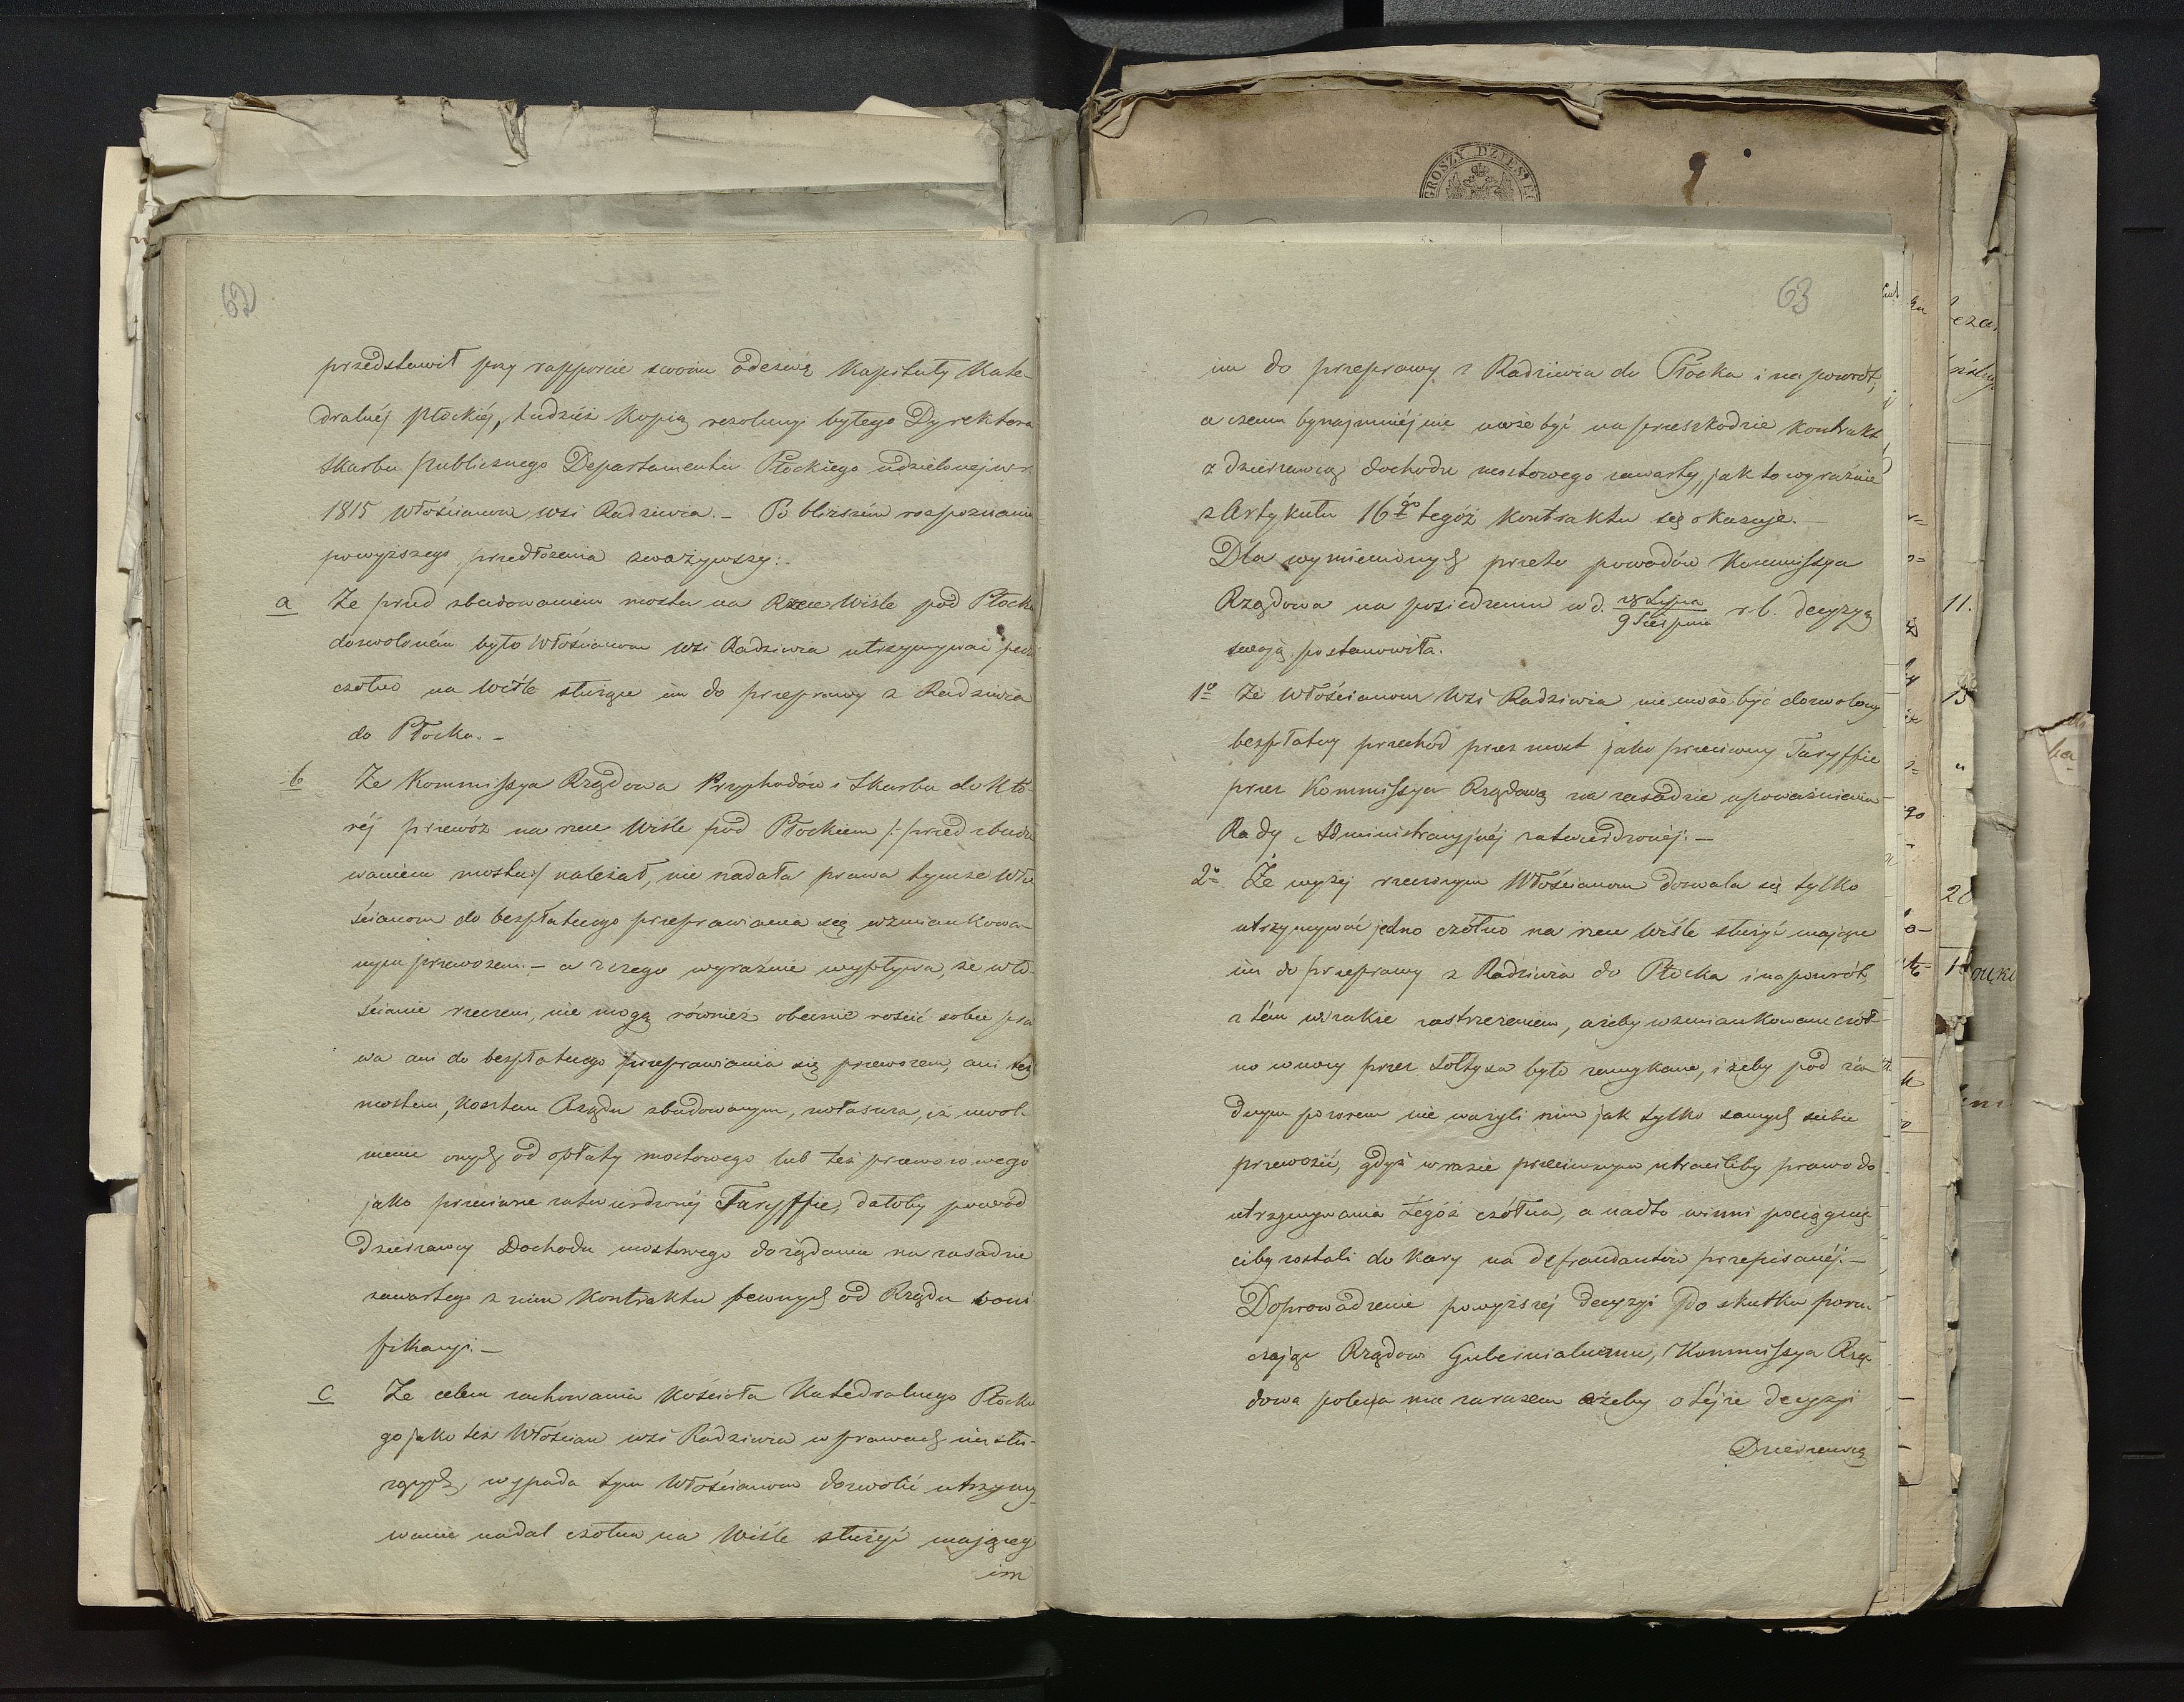 62
przedstawił przy rapporcie swoim odezwę Kapituły Kate-
dralnéj Płockiéj, tudzież Kopią rezolucyi byłego Dyrektora
Skarbu Publicznego Departamentu Płockiego udzielonéj w r.
1815 Włościanom wsi Radziwia. – Po bliższém rozpoznaniu
powyższego przedłożenia zważywszy:
a Że przed zbudowaniem mostu na Rzece Wiśle pod Płocki
dozwoloném było Włościanom wsi Radziwia utrzymywać
czółno na Wiśle służące im do przeprawy z Radziwia
do Płocka. –
b Że Kommissya Rządowa Przychodów i Skarbu do Któ-
réj przewóz na rzece Wiśle pod Płockiem /: przed zbudo
waniem mostu :/ należał, nie nadała prawa tymże Wło
ścianom do bezpłatnego przeprawiania się wzmiankowa-
nym przewozem. – a z czego wyraźnie wypływa, że wło-
ścianie rzeczeni, nie mogą również obecnie rościć sobie pra
wa ani do bezpłatnego przeprawiania się przewozem, ani też
mostem, Kosztem Rządu zbudowanym, zwłaszcza, iż uwol-
nienie onych od opłaty mostowego lub też przewozowego
jako przeciwne zatwierdzonéj Taryffie, dałoby powód
Dzierżawcy Dochodu mostowego do żądania na zasadzie
zawartego z nim Kontraktu pewnych od Rządu boni
fikacyi. –
c Że celem zachowania Kościoła Katedralnego Płockie
go jako też Włościan wsi Radziwia w prawach im słu-
żących, wypada tym Włościanom dozwolić utrzymy-
wanie nadal czółna na Wiśle służyć mającego
im
63
im do przeprawy z Radziwia do Płocka i na powrót,
a czemu bynajmniéj nie może być na przeszkodzie Kontrakt
z dzierżawcą dochodu mostowego zawarty, jak to wyraźnie
z Artykułu 16go tegóż Kontraktu się okazuje. –
Dla wymienionych przeto powodów Kommissya
Rządowa na posiedzeniu w d. 28 Lipca / 9 Sierpnia r. b. decyzyą
swoją postanowiła.
1o Że Włościanom Wsi Radziwia nie może być dozwolony
bezpłatny przechód przez most jako przeciwny Taryffie
przez Kommissya Rządową na zasadzie upoważnienia
Rady Administracyjnéj zatwierdzonéj. –
2o Że wyżej rzeczonym Włościanom dozwala się tylko
utrzymywać jedno czółno na rzece Wiśle służyć mające
im do przeprawy z Radziwia do Płocka i na powrót,
z tém wszakże zastrzeżeniem, ażeby wzmiankowane czół-
no w nocy przez Sołtysa było zamykane, i żeby pod ża-
dnym pozorem nie ważyli nim jak tylko samych siebie
przewozić, gdyż w razie przeciwnym utraciliby prawo do
utrzymywania tegóż czółna, a nadto winni pociągnię-
ciby zostali do Kary na defraudantów przepisanéj. –
Doprowadzenie powyższéj decyzyi do skutku poru-
czając Rządowi Gubernialnemu, Kommissya Rzą-
dowa poleca mu zarazem ażeby o téjże decyzyi
Dzierżawcę
GROSZY DZIESIĘ
11.